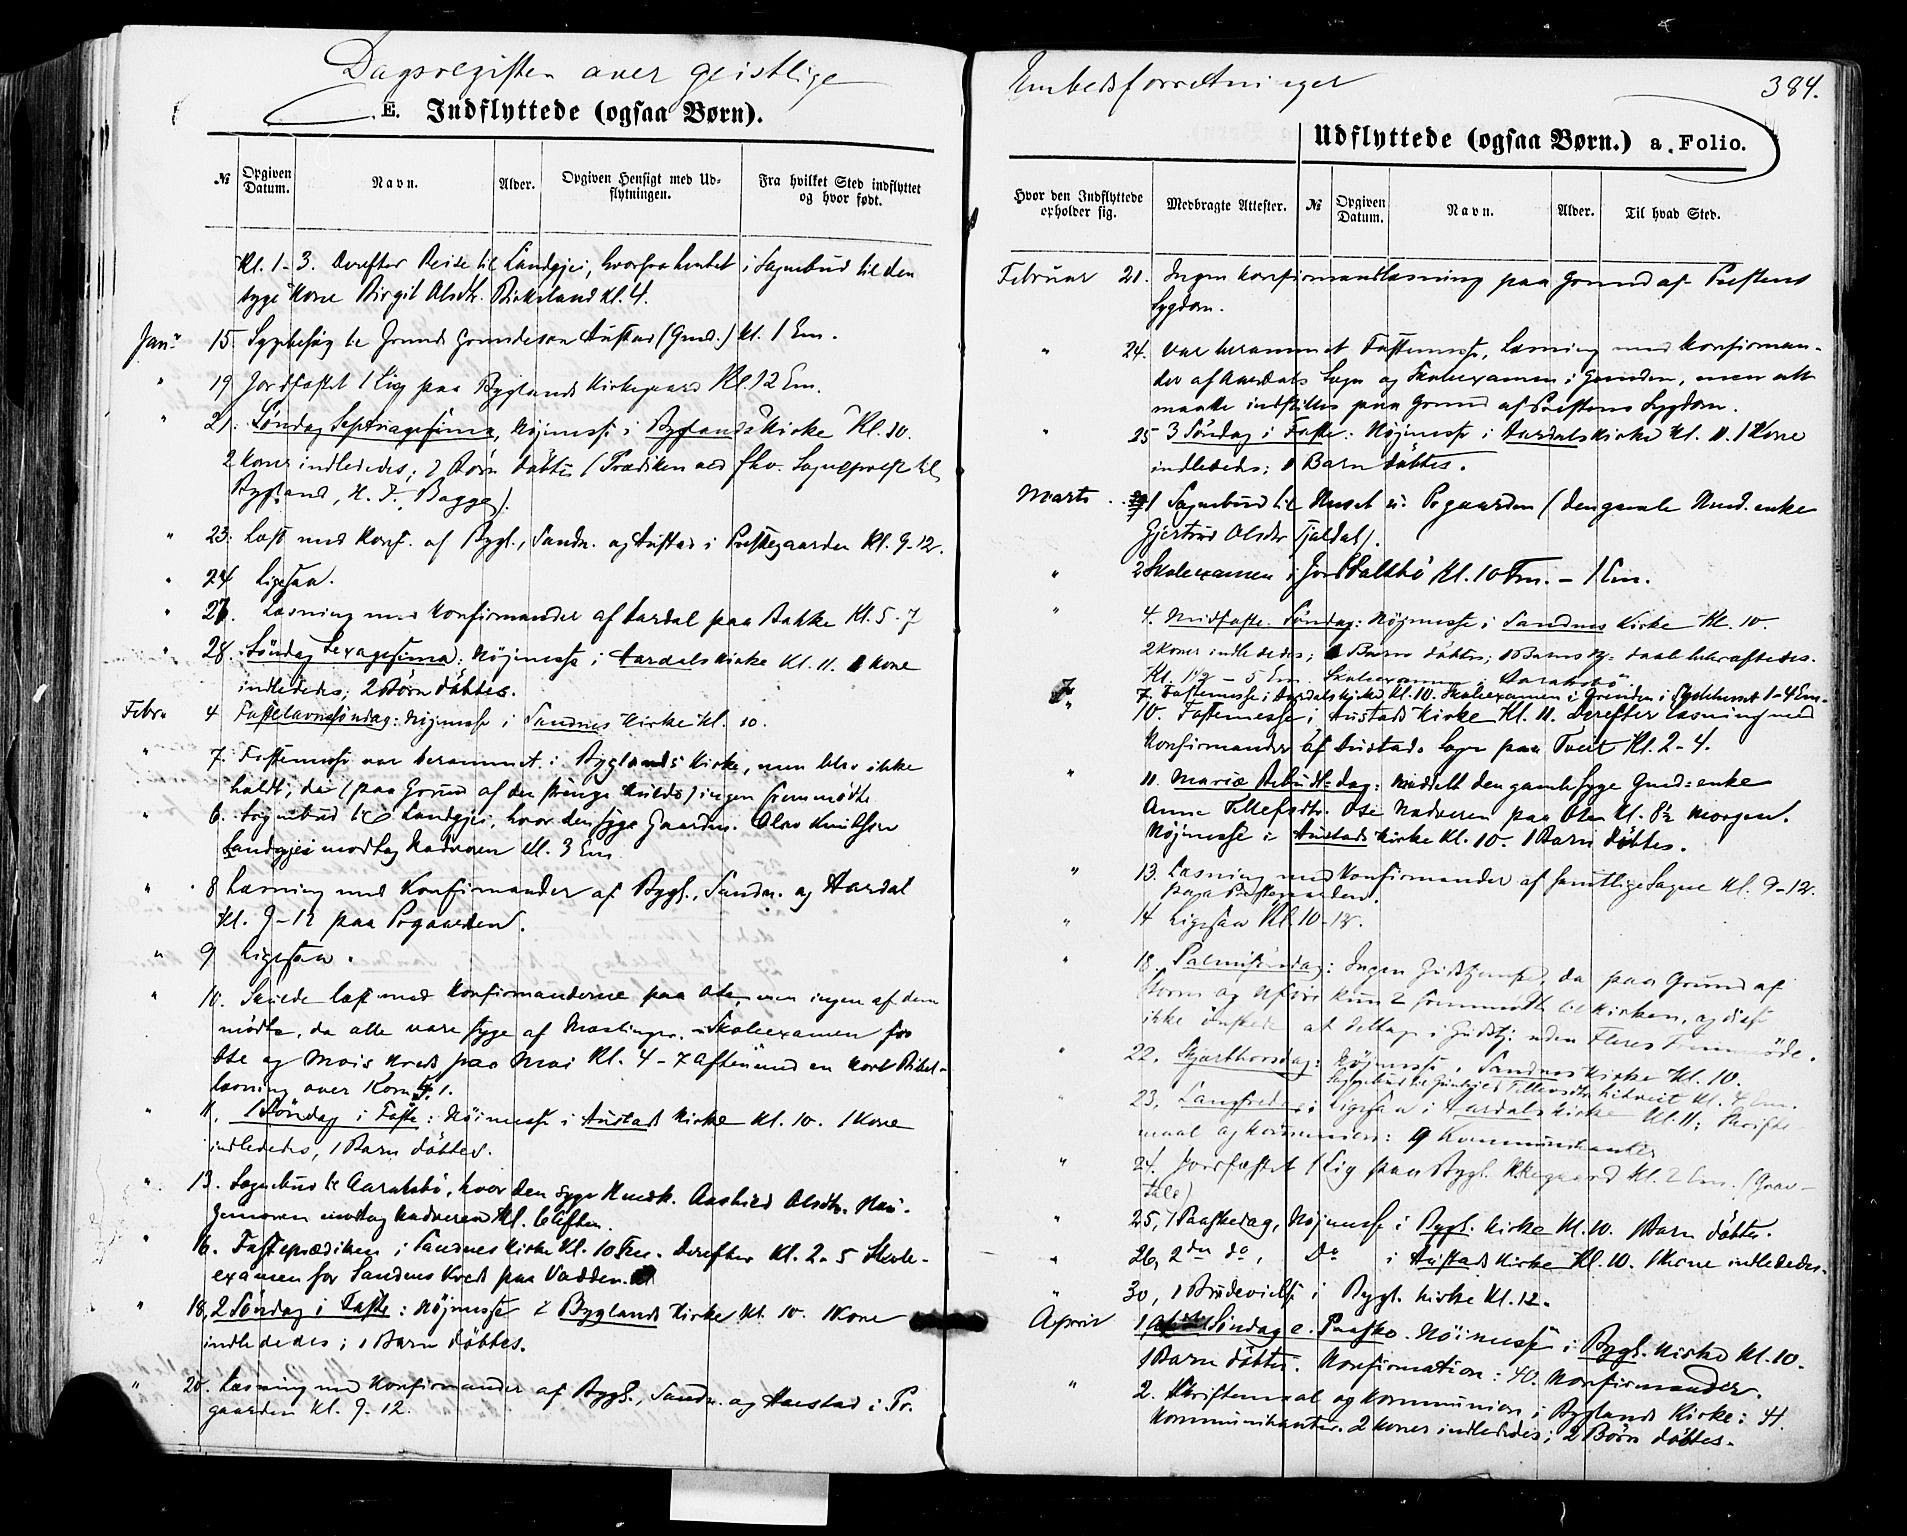 Dagsregister over geistlige
E. Indflyttede (ogsaa Børn).
№ Opgiven Datum. Navn. Alder. Opgiven Hensigt med Udflytningen. Fra hvilket Sted indflyttet og hvor født.
Kl. 1-3. Derefter Reise til Landgjei, hvorfra hentet i Sognebud til den
syge Kone Birgit Olsdtr. Birkeland Kl. 4.
Jan. 15. Sygebesøg hos Gunder Gundersen Austad (Gmd.) Kl. 1 Em.
" 19 Jordfæstet 1 Lig paa Byglands Kirkegaard Kl. 12 Em.
" 21. Søndag Septuagesima, Højmesse i Byglands Kirke Kl. 10.
2 Koner indlededes; 2 Børn døbtes (Prædiken ved fhv. Sognepræst til
Bygland, H. J. Bagge).
" 23. Læst med Konf. af Bygl., Sandn. og Austad i Præstegaarden Kl. 9-12.
" 24 Ligesaa.
" 27. Læsning med Konfirmander af Aardal paa Bakke Kl. 5-7
" 28. Søndag Sexagesima: Højmesse i Aardals Kirke Kl. 11. 1 Kone
indlededs; 2 Børn døbtes.
Febr. 4 Fastelavnssøndag: Højmesse i Sandnes Kirke Kl. 10.
" 7. Fastemesse var berammet i Byglands Kirke, men blev ikke
holdt, da (paa Grund af den strenge Kulde) ingen fremmødte.
" 6. Sognebud til Landgjei, hvor den syge Gaardm. Olav Knudsen
Landgjei modtog Nadveren Kl. 3 Em.
" 8 Læsning med Konfirmander af Bygl., Sandn. og Aardal
Kl. 9-12 paa Prgaarden.
" 9 Ligesaa.
" 10. Skulde læst med Konfirmanderne paa Ose, men ingen af dem
mødte, da alle vare syge af Mæslinger. - Skoleexamen for
Ose og Mois Kreds paa Moi Kl. 4-7 Aften med en kort Bibel-
læsning over Kor. 1.
" 11. 1 Søndag i Faste: Højmesse i Austads Kirke Kl. 10. 1 Kone
indlededes, 1 Barn døbtes.
" 13. Sognebud til Aaraksbø, hvor den syge Aasbild Olsdtr.
modtog Nadveren Kl. 6 Aften.
" 16. Fasteprædiken i Sandnes Kirke Kl. 10 Fm. Derefter Kl. 2-5 Skole-
examen for Sandnes Kreds paa Vadden.
" 18. 2 Søndag i Faste: Højmesse i Byglands Kirke Kl. 10. 1 Kone
indlededes; 1 Barn døbtes.
" 20. Læsning med Konfirmander af Bygl., Sandn. og Austad i Pr.
gaarden Kl. 9-12.
Embedsforretninger 384.
Udflyttede (ogsaa Børn.) a. Folio.
Hvor den Indflyttede opholder sig. Medbragte Attester. № Opgiven Datum. Navn. Alder. Til hvad Sted.
Februar 21. Ingen Konfirmantlæsning paa Grund af Præstens
Sygdom.
" 24. var berammet Fastemesse, Læsning med Konfirman-
der af Aardals Sogn og Skoleexamen i Grenden, men alt
maatte indstilles paa Grund af Præstens Sygdom.
" 25 3 Søndag i Faste: Højmesse i Aardals Kirke Kl. 11. 1 Kone
indlededs; 1 Barn døbtes.
Marts 1 Sognebud til Huset u. Prgaarden (den gamle enke
Gjertrud Olsdtr
" 2 Skoleexamen i Jordalsbø Kl. 10 Fm. - 1 Em.
" 4. Midfaste Søndag: Højmesse i Sandnes Kirke Kl. 10.
2 Koner indlededes; 1 Barn døbtes; 1 Barns Hj. daab bekræftedes.
Kl. 1½ - 5 Em. Skoleexamen i Aaraksbø.
" 7. Fastemesse i Aardals Kirke Kl. 10. Skoleexamen i Grenden i 1-4 Em.
10. Fastemesse i Austads Kirke Kl. 11. Derefter Læsning med
Konfirmander af Austads Sogn paa Tveit Kl. 2-4.
" 11. Mariæ Bebud.-dag: meddelt den gamle syge Gmd.enke
Anne Tellefsdtr. Ose Nadveren paa Ose Kl. 8½ Morgen.
Højmesse i Austads Kirke Kl. 10. 1 Barn døbtes.
" 13. Læsning med Konfirmander af samtlige Sogne Kl. 9-12.
paa Præstegaarden.
" 14 Ligesaa Kl. 10-12.
" 18. Palmesøndag: Ingen Gudstjeneste, da paa Grund af
Storm og Uføre kun 2 fremmødte til Kirken, og disse
ikke ønskede at deltage i Gudstj. uden Fleres Fremmøde.
" 22. Skjærthorsdag: Højmesse i Sandnes Kirke Kl. 10.
Sognebud til Tellevsdtr. Kl. 4 Em.
23. Langfredag: Ligesaa i Aardals Kirke Kl. 11; Skrifte-
maal og Kommunion: 9 Kommunikanter
" 24. Jordfæstet 1 Lig paa Bygl. Kirkegaard Kl. 2 Em. (Grav-
tale)
" 25, 1 Paaskedag, Højmesse i Bygl. Kirke Kl. 10. 1 Barn døbtes.
" 26, 2den do, Do i Austads Kirke Kl. 10. 1 Kone indlededes.
" 30, 1 Brudevielse i Bygl. Kirke Kl. 12.
April 1, 1ste Søndag e. Paaske. Højmesse i Bygl. Kirke Kl. 10.
1 Barn døbtes. Konfirmation: 40. Konfirmander.
" 2. Skriftemaal og Kommunion i Byglands Kirke: 41.
Kommunikanter. 2 Koner indlededes; 2 Børn døbtes.